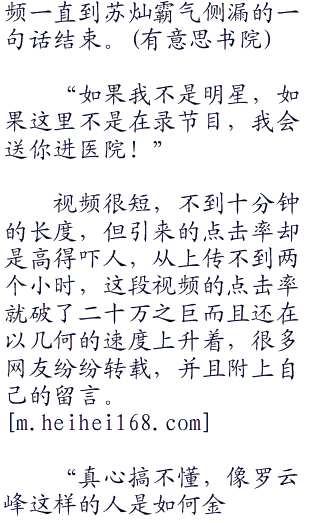 频一直到苏灿霸气侧漏的一
句话结束。(有意思书院)
“如果我不是明星，如
果这里不是在录节目，我会
送你进医院！”
视频很短，不到十分钟
的长度，但引来的点击率却
是高得吓人，从上传不到两
个小时，这段视频的点击率
就破了二十万之巨而且还在
以几何的速度上升着，很多
网友纷纷转载，并且附上自
己的留言。
[m.heihei168.com]
“真心搞不懂，像罗云
峰这样的人是如何金